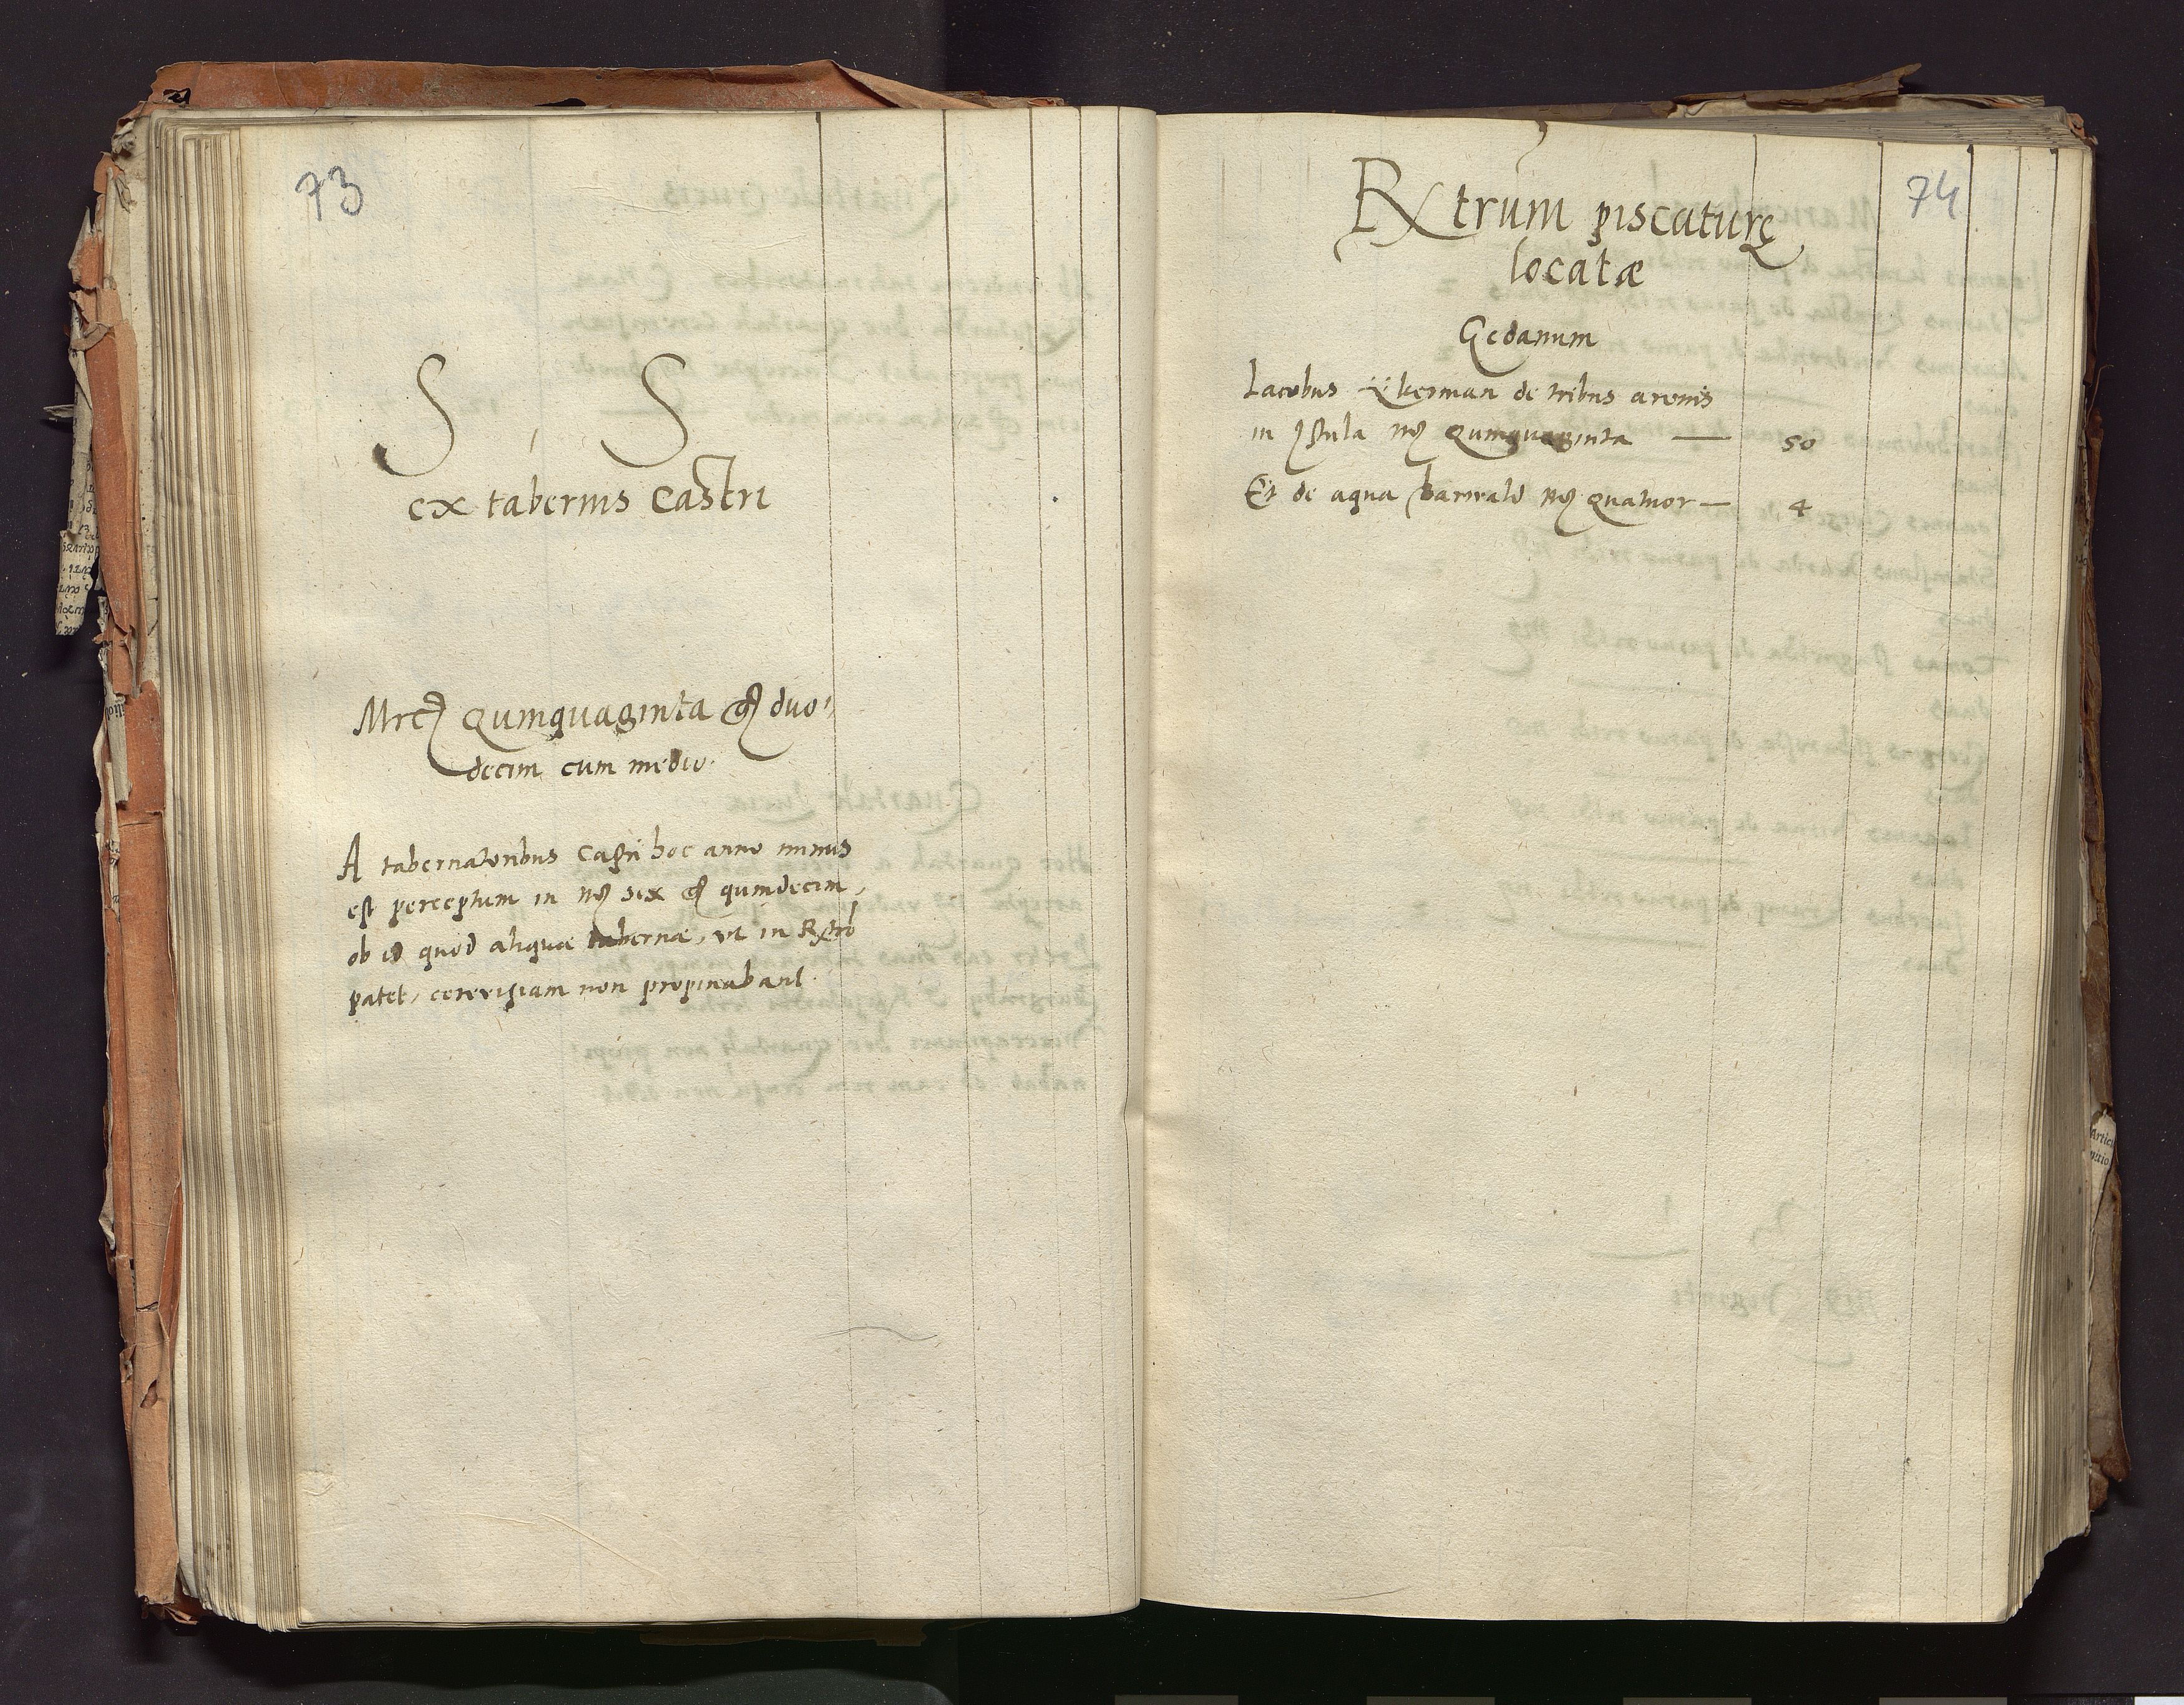 73
S S
ex tabernis Castri
Mrc Quinquaginta g duo
decim cum medio
A tabernatoribus Castri hoc anno minus
est perceptum in mc sex g quindecim,
ob id quod aliquae tabernae, ut in Rxtro
patet, cerevisiam non propinabant
74
Rxtrum piscaturę
locatæ
Gedanum
Iacobus de tribus
in mc Quinquaginta — 50
Et de aqua mc Quatuor — 4